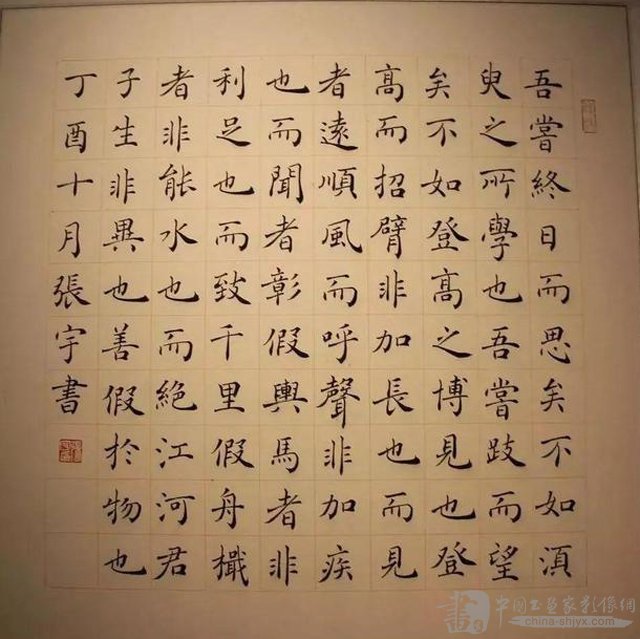 吾嘗終日而思矣不如湏
臾之所學也吾嘗跂而望
矣不如登高之博見也登
高而招臂非加長也而見
者遠順風而呼聲非加疾
也而聞者彰假輿馬者非
利足也而致千里假舟檝
者非能水也而絕江河君
子生非異也善假於物也
丁酉十月張宇書
china-shjyx.com